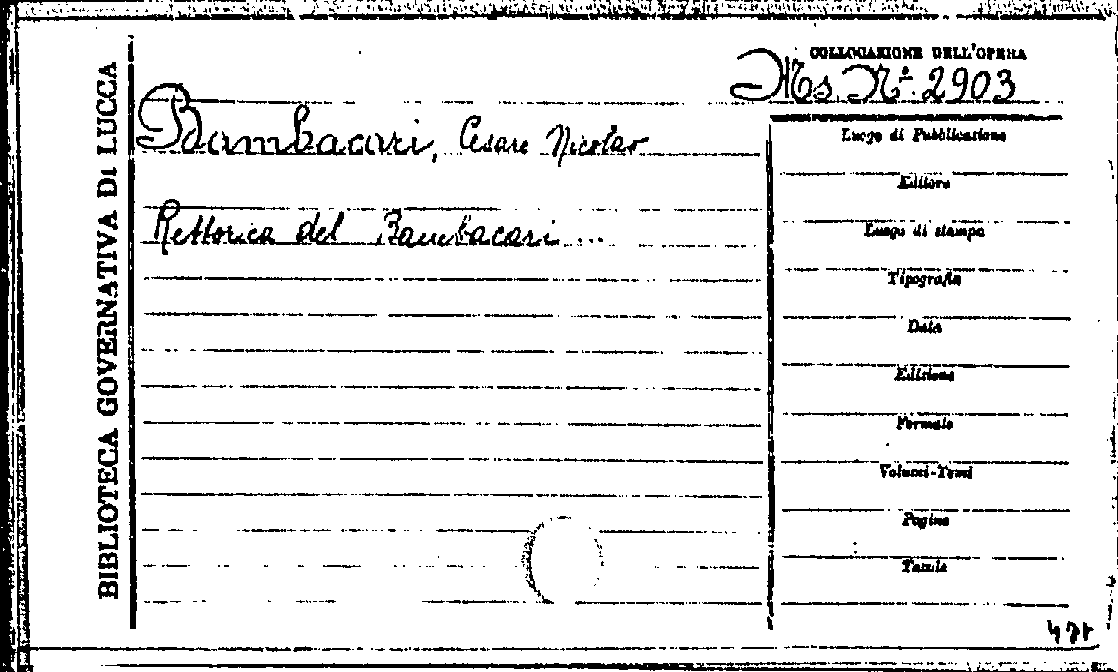 BIBLIOTECA GOVERNATIVA DI LUCCA
COLLOCAZIONE DELL'OPERA
Ms. N.º 2903
Bambacari, Cesare Nicolao
Rettorica del Bambacari ...
Luogo di Pubblicazione
Editore
Luogo di stampa
Tipografia
Data
Edizione
Formato
Volumi-Tomi
Pagine
Tavole